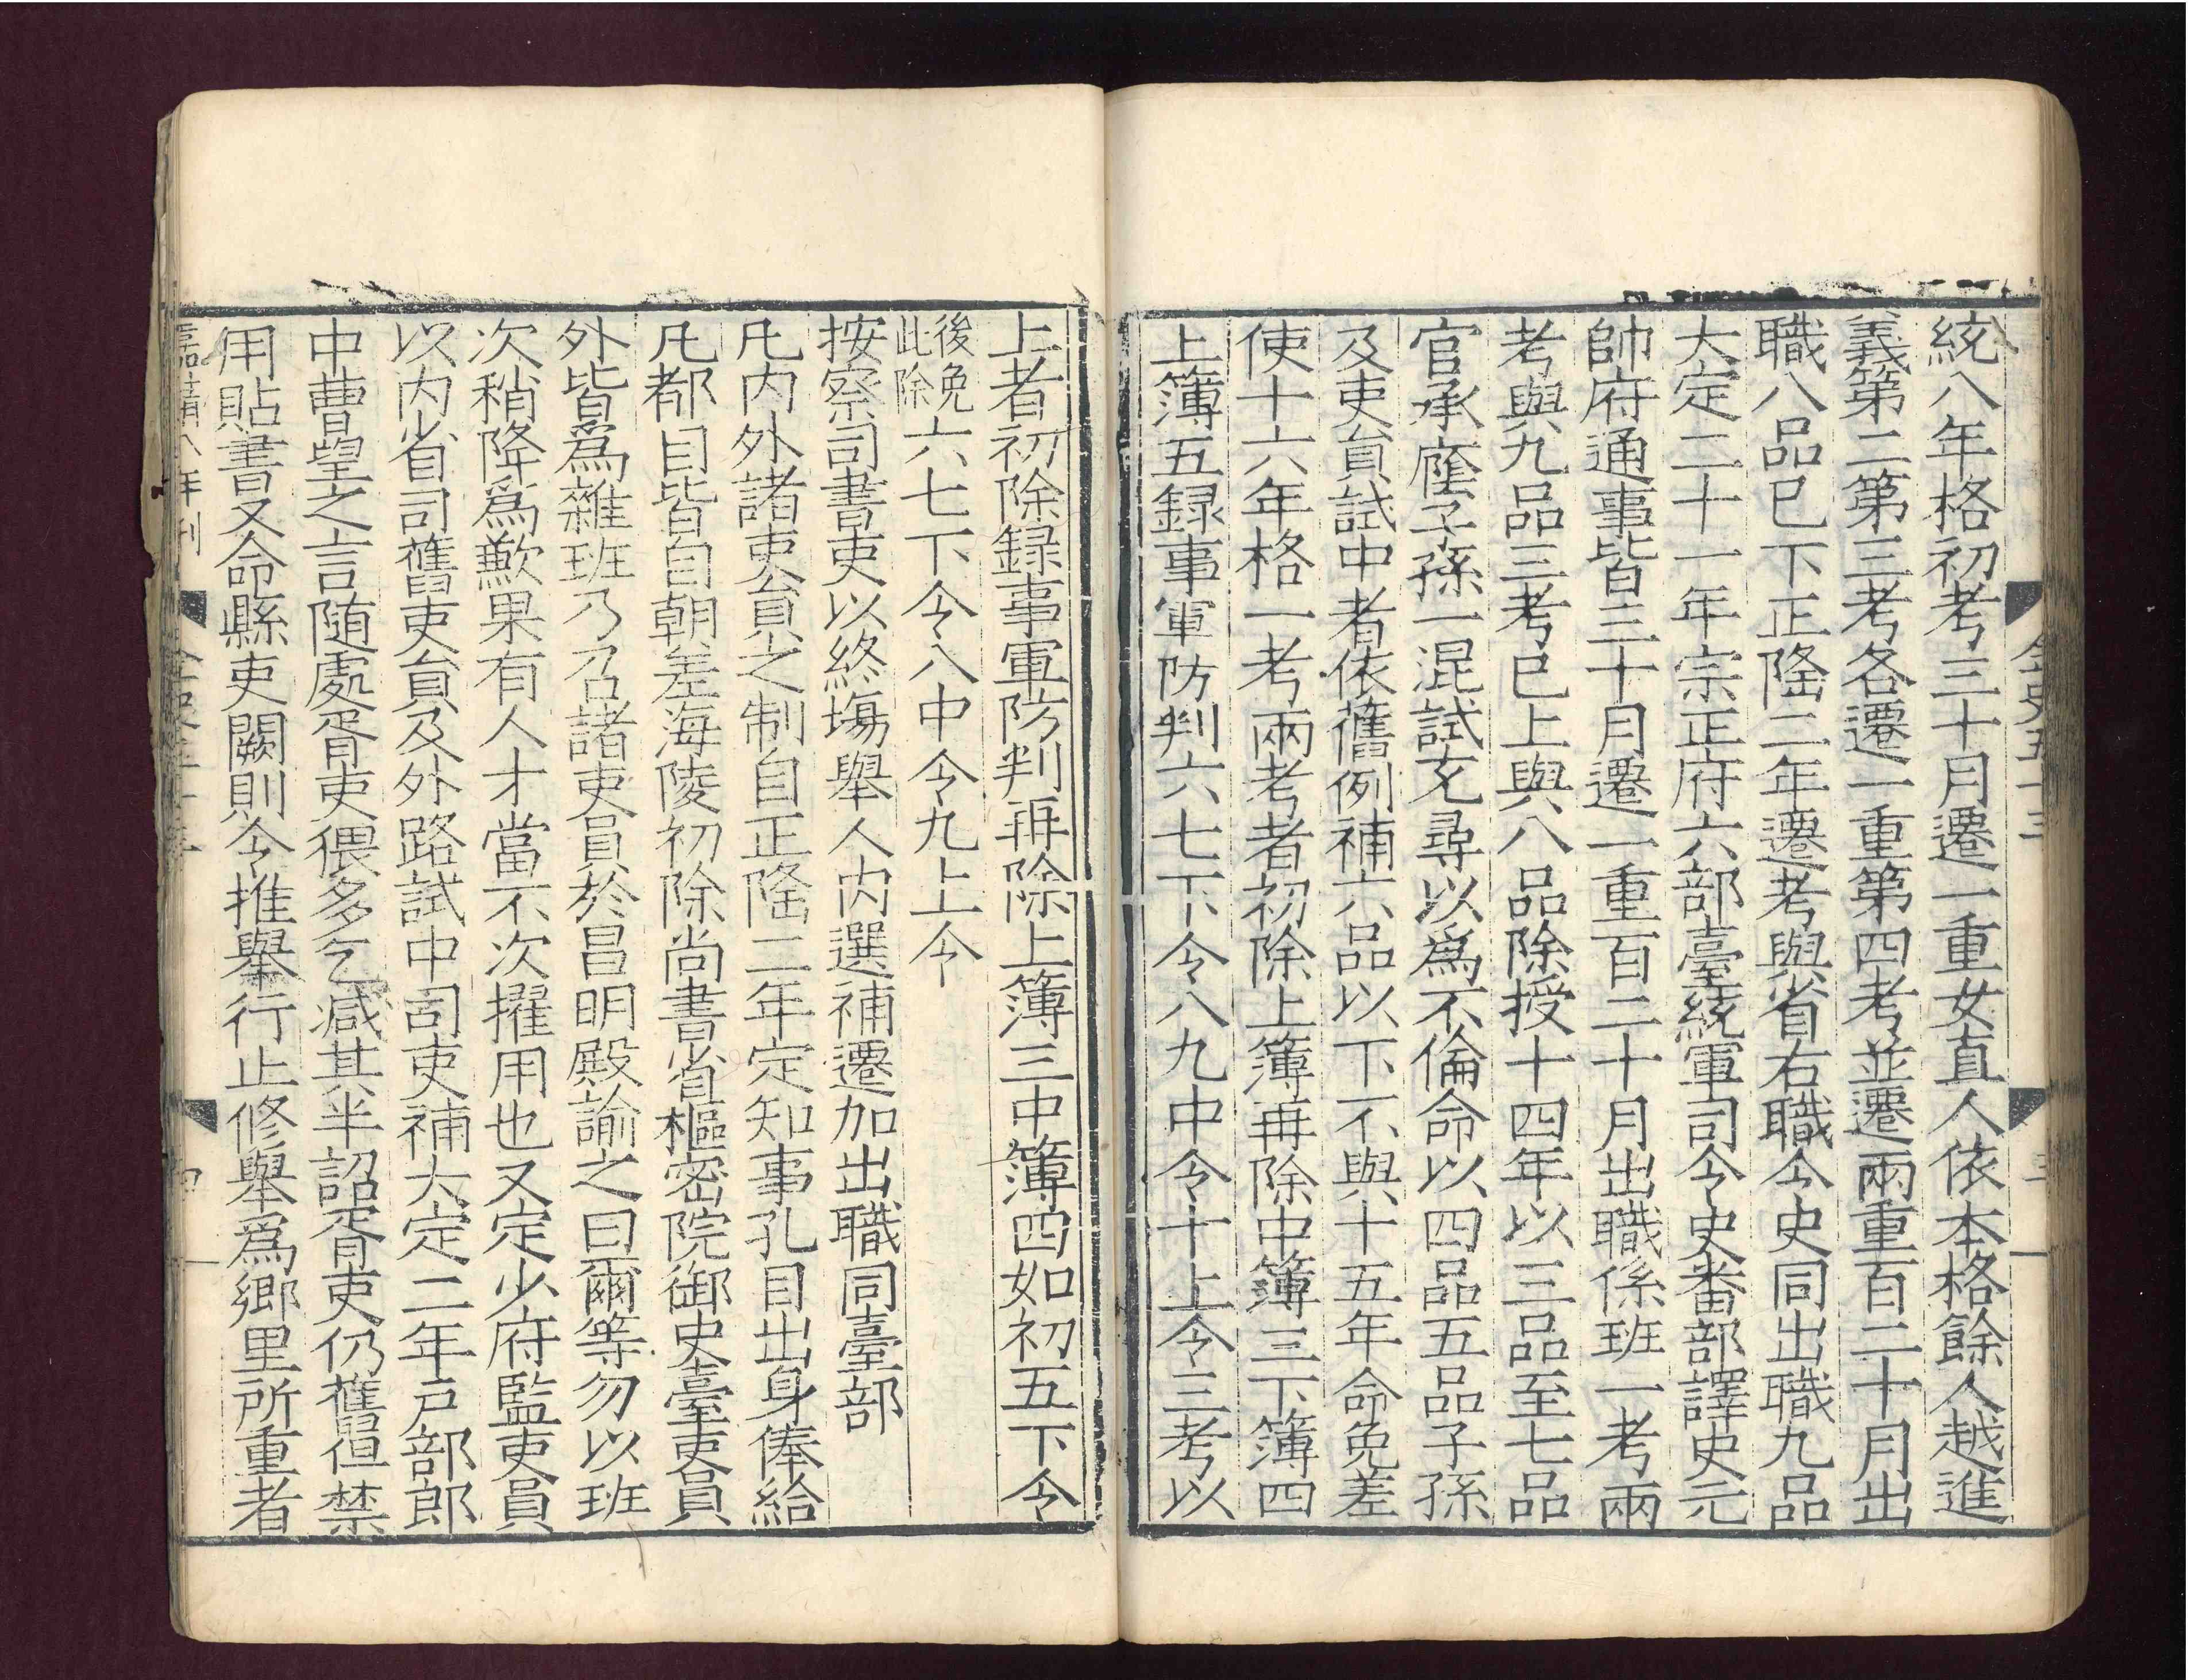 統八年格初考三十月遷一重女直人依本格餘人越進
義第二第三考各遷一重第四考並遷兩重百二十月出
職八品已下正隆二年遷考與省右職令史同出職九品
大定二十一年宗正府六部臺統軍司令史番部譯史元
帥府通事皆三十月遷一重百二十月出職係班一考兩
考與九品三考已上與八品除授十四年以三品至七品
官承廕子孫一混試充尋以爲不倫命以四品五品子孫
及吏員試中者依舊例補六品以下不與十五年命免差
使十六年格一考兩考者初除上簿再除中簿三下簿四
上簿五録事軍防判六七下令八九中令十上令三考以
上者初除録事軍防判再除上簿三中簿四如初五下令
後免
此除
六七下令八中令九上令
按察司書吏以終塲舉人内選補遷加出職同臺部
凡内外諸吏員之制自正隆二年定知事孔目出身俸給
凡都目皆自朝差海陵初除尚書省樞密院御史臺吏員
外皆爲雜班乃召諸吏員於昌明殿諭之曰爾等勿以班
次稍降爲歉果有人才當不次擢用也又定少府監吏員
以内省司舊吏員及外路試中司吏補大定二年戶部郎
中曹望之言随處胥吏猥多乞减其半詔胥吏仍舊但禁
用貼書又命縣吏闕則令推舉行止修舉爲鄉里所重者
嘉靖八年刊
四